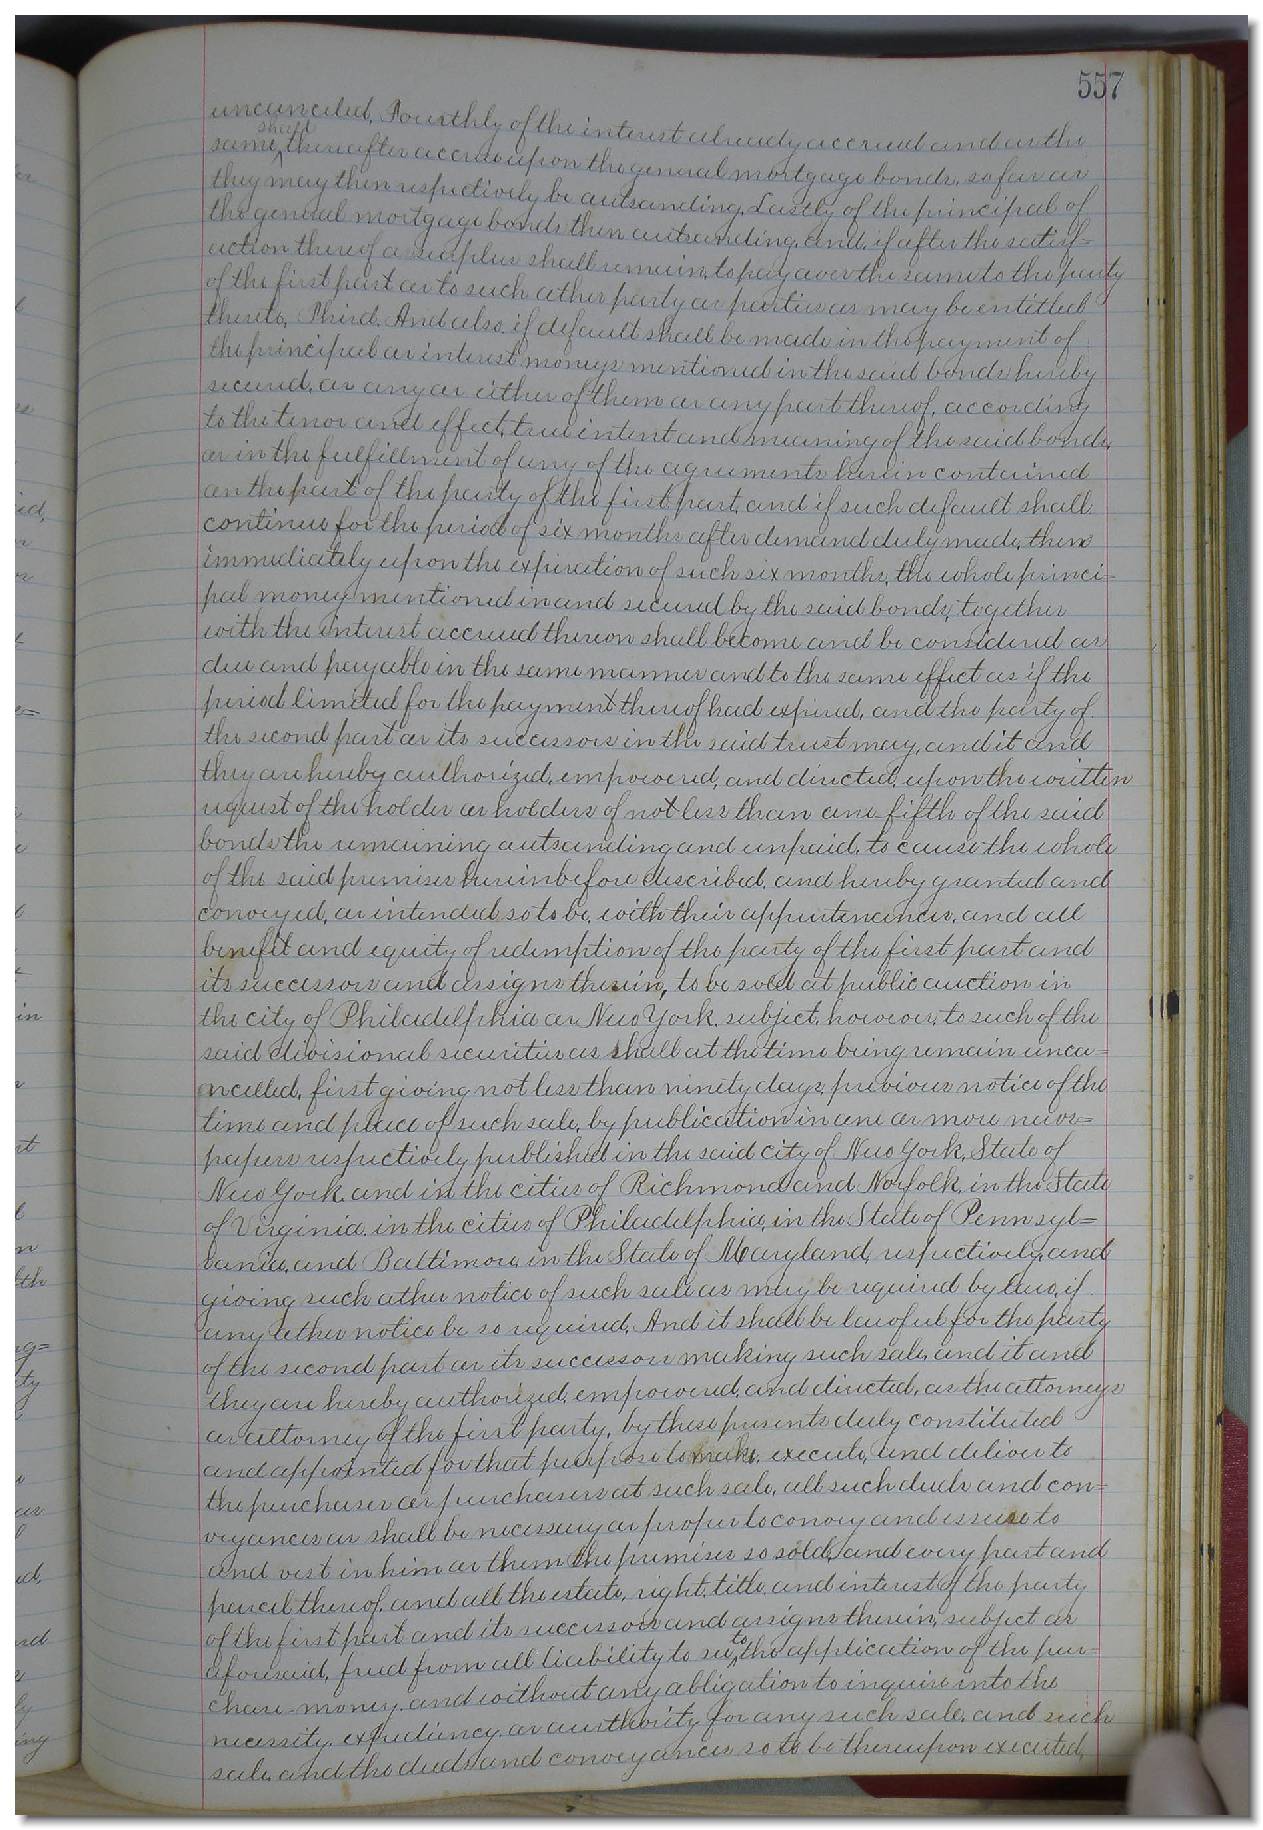 557
uncanceled, Fourthly of the interest already accrued and as the
same shall thereafter accrue upon the general mortgage bonds, so far as
they may then respectively be outsanding, Lastly of the principal of
the general mortgage bonds then outsanding, and, if after the satisf=
action thereof a surplus shall remain, to pay over the same to the party
of the first part or to such other party or parties as may be entitled
thereto, Third. And also, if default shall be made in the payment of
the principal or interest moneys mentioned in the said bonds hereby
secured, or any or either of them or any part thereof, according
to the tenor and effect, true intent and meaning of the said bonds,
or in the fulfillment of any of the agreements herein contained
on the part of the party of the first part, and if such default shall
continue for the period of six months after demand duly made, then
immediately upon the expiration of such six months, the whole princi=
pal money mentioned in and secured by the said bonds, together
with the interest accrued thereon shall become and be considered as
due and payable in the same manner and to the same effect as if the
period limited for the payment thereof had expired, and the party of
the second part or its successors in the said trust may, and it and
they are hereby authorized, empowered, and directed, upon the written
request of the holder or holders of not less than one-fifth of the said
bonds the remaining outsanding and unpaid, to cause the whole
of the said premises hereinbefore described, and hereby granted and
conveyed, or intended so to be, with their appurtenances, and all
benefit and equity of redemption of the party of the first part and
its successors and assigns therein, to be sold at public auction in
the city of Philadelphia or New York, subject, however, to such of the
said divisional securities as shall at the time being remain unca=
ncelled, first giving not less than ninety days, previous notice of the
time and place of such sale, by publication in one or more news=
papers respectively published in the said city of New York, State of
New York, and in the cities of Richmond and Norfolk, in the State
of Virginia, in the cities of Philadelphia, in the State of Pennsyl=
vania, and Baltimore, in the State of Maryland, respectively, and
giving such other notice of such sale as may be required by law, if
any other notice be so required, And it shall be lawful for the party
of the second part or its successors making such sale, and it and
they are hereby authorized, empowered, and directed, as the attorneys
or attorney of the first party, by these presents duly constituted
and appointed for that purpose to make, execute, and deliver to
the purchaser or purchasers at such sale, all such deeds and con=
veyances as shall be necessary or proper to convey and assure to
and vest in him or them the premises so sold, and every part and
parcel thereof, and all the estate, right, title, and interest of the party
of the first part and its successors and assigns therein, subject as
aforesaid, freed from all liability to see to the application of the pur=
chase-money, and without any obligation to inquire into the
necessity, expediency, or authority for any such sale, and such
sale, and the deeds and conveyances so to be thereupon executed,